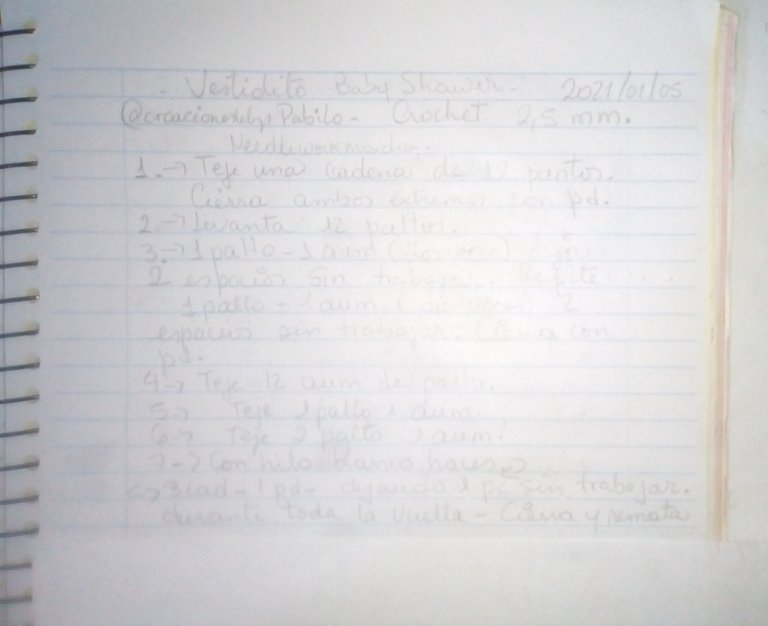 - Vestidito Baby Shower - 2021/01/05
Pabilo - Crochet 2,5 mm.
1.→ Teje una cadena de 12 puntos.
Cierra ambos extremos con pd.
2.→ levanta 12 paltos.
3.→ 1 palto - 1 aum (dos veces)
2 espacios sin trabajar. Repite
1 palto - 1 aum (dos veces) 2
espacios sin trabajar. Cierra con
pd.
4→ Teje 12 aum de palto.
5→ Teje 1 palto 1 aum.
6→ Teje 2 palto 1 aum.
7→ Con hilo blanco haces
3 cad - 1 pd - dejando 1 pt sin trabajar.
durante toda la vuelta - Cierra y remata